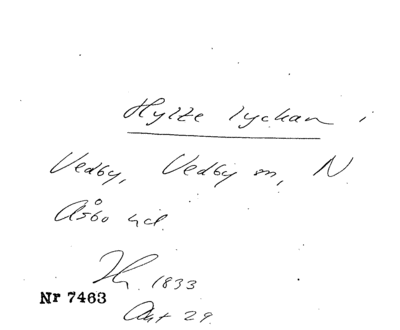 Hylte lyckan i
Vedby, Vedby sn, N
Åsbo hd.
Th. 1833
Nr 7463
Akt 29.